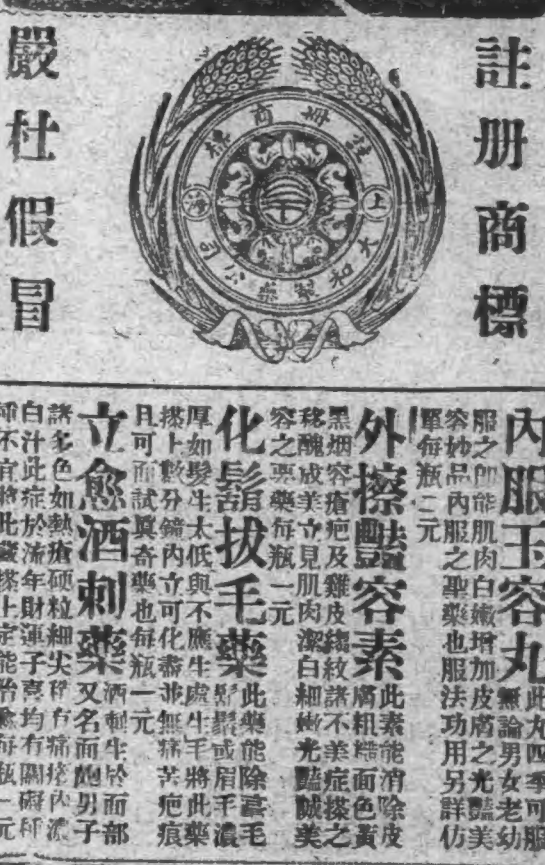 註册商標
註册商標
上海
大和製藥公司
嚴杜假冒
內服玉容丸
此丸四季可服
無論男女老幼
服之即能肌肉白嫩增加皮膚之光豔美
容妙品內服之聖藥也服法功用另詳仿
單每瓶二元
外擦豔容素
此素能消除皮
膚粗糙面色黃
黑烟容瘡疤及雞皮縐紋諸不美症搽之
移醜成美立見肌肉潔白細嫩光豔誠美
容之要藥每瓶一元
化鬍拔毛藥
此藥能除毫毛
鬍鬚或眉毛濃
厚如髮生太低與不應生處生毛將此藥
搽上數分鐘內立可化盡並無痛苦疤痕
且可面試眞奇藥也每瓶一元
立愈酒刺藥
酒刺生於面部
又名面皰男子
諸多色如熱瘡硬粒細尖稍有痛癢內濃
白汁此症於流年財運子喜均有關礙種
種不宜將此藥搽上定能治愈每瓶一元